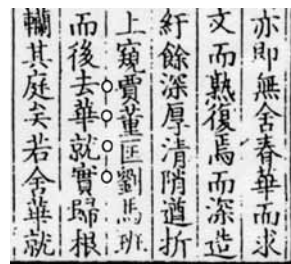 亦即無舍春華而求
文而熟復焉而深造
紆餘深厚清陗遒折
上窺賈董匡劉馬班
而後去華就實歸根
轥其庭矣若舍華就